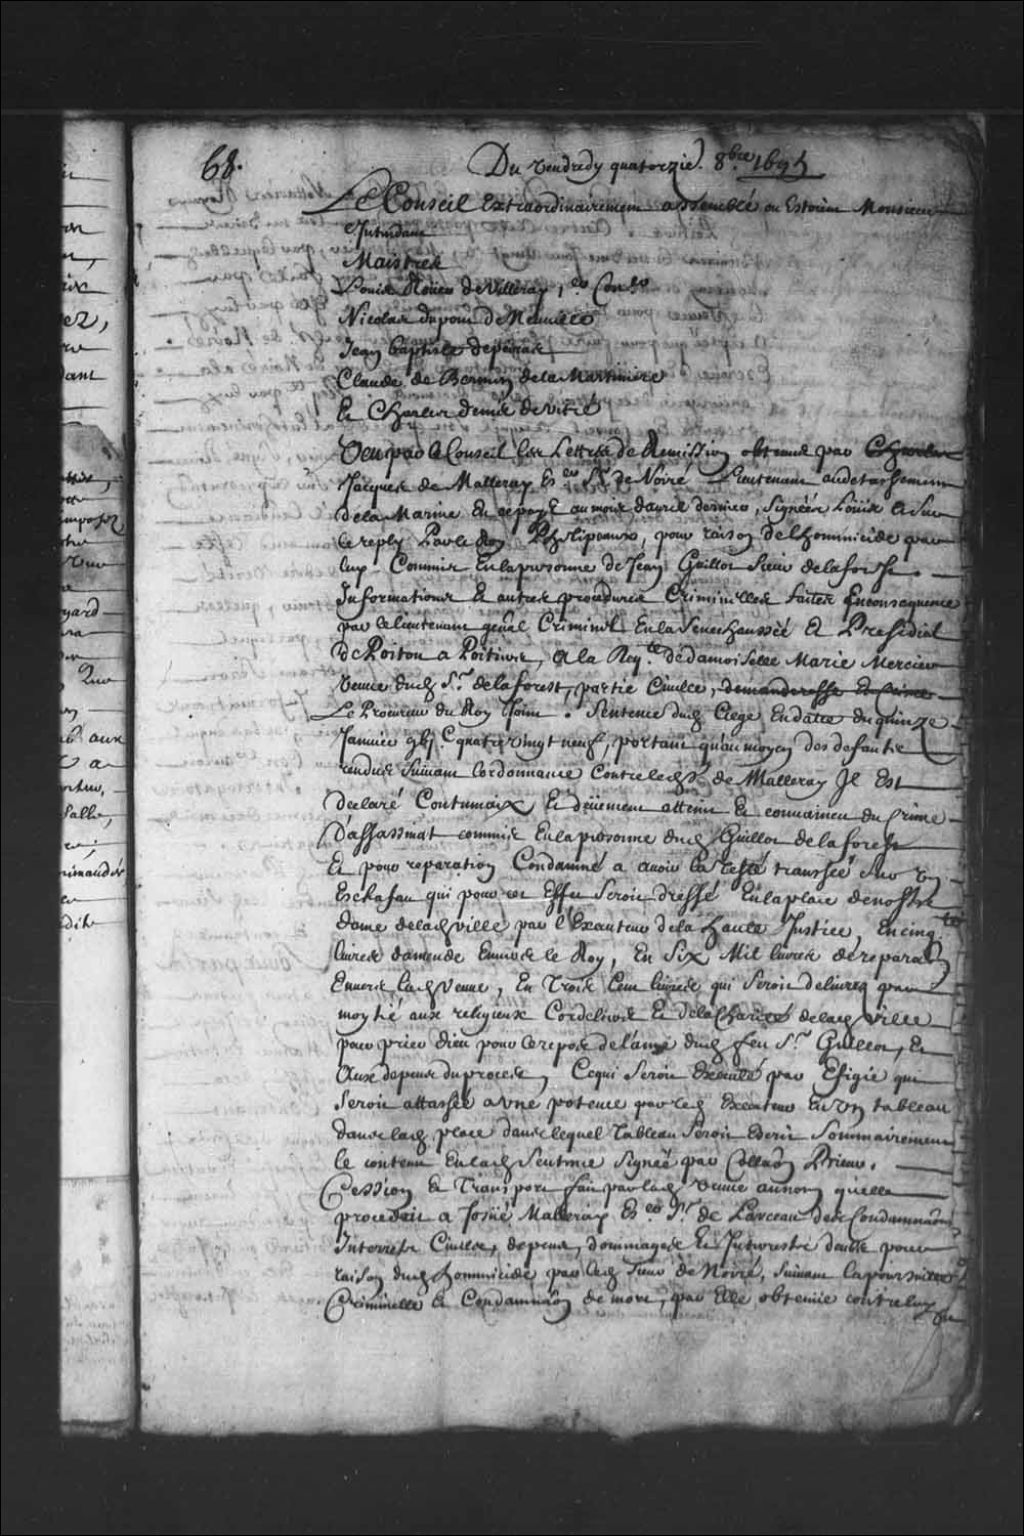 68.
Du Vendredy quatorzie. 8bre 1695
Le Conseil Extraordinairement assemblé ou Estoient Monsieur
Intendant
Maistres
Louis Roüer de Villeray, 1er Conser
Nicolas dupont de Neuville
Jean baptiste depeiras
Claude de Bermen de la Martiniere
Et Charles denis de vitré
Veu par le Conseil les Lettres de Remission obtenues par Charles
Jacques de Malleray Escer Sr de Noiré Lieutenant au detachement
de la Marine En ce païs au mois davril dernier, Signées Loüis Et Sur
le reply Par le Roy Phelipeaux, pour raison de lhommicide par
luy Commis En la personne de Jean Guillot Sieur de la forest.
Informations Et autres procedures Criminelles faites En consequence
par le lieutenant genal Criminel En la Senechaussée Et Presidial
de Poitou a Poitiers, a la Reqte de damoiselle Marie Mercier
Veuve dud Sr de la forest, partie Civille, demanderesse et Crime
Le Procureur du Roy Joint. Sentence dud Siege En datte du quinze
Janvier gbjC quatre vingt neuf, portant qu'au moyen des defautes
rendus Suivant lordonnance Contre led Sr de Malleray Il Est
declaré Contumaix Et deüement atteint Et convaincu du Crime
D'assassinat commis En la personne dud Guillot de la forest
Et pour reparation Condamné a avoir la teste transsée Sur Un
Eschafau qui pour cet Effet Seroit dressé En la place de nostre
dame de lad ville par l'Executeur de la haute Justice, En cinq Cts
livres damende Envers le Roy, En Six Mil livres de reparaon
Envers lad Veuve, En Trois Cent livres qui Seroit delivrés par
moytié aux religieux Cordeliers Et de la Charité de lad ville
pour prier dieu pour le repos de l'ame dud feu Sr Guillot, Et
Aux depens du procés, Ce qui Seroit Executé par Efigie qui
Seroit attassée a vne potence par led Executeur En Un tableau
dans lad place dans lequel Tableau Seroit Escrit Sommairement
le contenu En lad Sentence Signée par Collaõn Prieur.
Cession Et Transport fait par lad Veuve au nom quelle
procedoit a Josüé Malleray Escer Sr de Larceau des Condamnaõns
Interrests Civiles, depens, dommages Et Interrests daulte pour
raison dud hommicide par led Sieur de Noiré, Suivant la poursuitte
Criminelle Et Condamnaõn de mort, par Elle obtenüe contre luy En